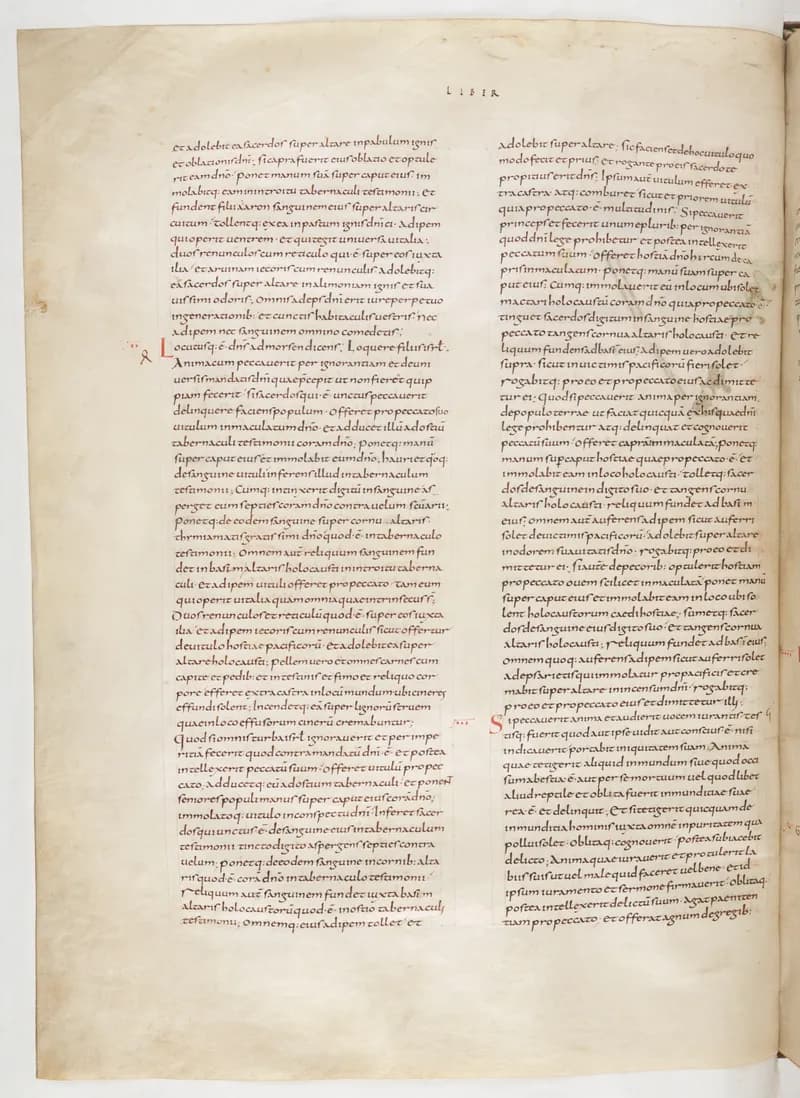 LIBER
et adolebit ea sacerdos super altare in pabulum ignis
et oblationis dn̄i; si capra fuerit eius oblatio et obtule
rit eam dnō· ponet manum suā super caput eius· im
molabitq: eam in introitu tabernaculi testimonii; et
fundent filii aaron sanguinem eius super altaris cir
cuitum· tollentq: ex ea in pastum ignis dn̄ici· adipem
qui operit uentrem· et qui tegit uniuersa uitalia·
duos renunculos cum reticulo qui ē· super eos iuxta
ilia· et aruinam iecoris cum renunculis· adolebitq:
ea sacerdos super altare in alimoniam ignis et sua
uissimi odoris; Omnis adeps dn̄i erit iure perpetuo
in generationib: et cunctis habitaculis uestris· nec
adipem nec sanguinem omnino comedetis;
Locutusq: ē· dns̄ ad mosen dicens; Loquere filiis isrl̄·
Anima cum peccauerit per ignorantiam et de uni
uersis mandatis dn̄i quae praecepit ut non fierent quip
piam fecerit· si sacerdos qui ē· unctus peccauerit
delinquere faciens populum· offeret pro peccato suo
uitulum inmaculatum dnō· et adducet illū ad ostiū
tabernaculi testimonii coram dnō; ponetq: manū
super caput eius et immolabit eum dnō; hauriet q̄oq:
de sanguine uituli inferens illud in tabernaculum
testimonii; Cumq: intinxerit digitū in sanguine as
perget eum septies coram dnō contra uelum sc̄uarii;
Ponetq: de eodem sanguine super cornua altaris
thymiamatis gratissimi dnō quod ē· in tabernaculo
testimonii; Omnem aut̄ reliquum sanguinem fun
det in basim altaris holocausti in introitu taberna
culi· et adipem uituli offeret pro peccato· tam eum
qui operit uitalia quam omnia quae intrinsecus s̄·
Duos renunculos et reticulū quod ē· super eos iuxta
ilia· et adipem iecoris cum renunculis sicut offertur
de uitulo hostiae pacificorū· et adolebit ea super
altare holocausti; pellem uero et omnes carnes cum
capite et pedib: et intestinis et fimo et reliquo cor
pore efferet extra castra in locū mundum ubi cineres
effundi solent; Incendetq: ea super lignorū struem
quae in loco effusorum cinerū cremabuntur;
Quod si omnis turba isrl̄ ignorauerit et per impe
ritiā fecerit quod contra mandatū dn̄i· ē· et postea
intellexerit peccatū suum· offeret uitulū pro pec
cato· adducetq: eū ad ostium tabernaculi· et ponent
seniores populi manus super caput eius corā dnō;
immolatoq: uitulo in conspectu dn̄i· Inferet sacer
dos qui unctus ē· de sanguine eius in tabernaculum
testimonii tincto digito aspergens septies contra
uelum; ponetq: de eodem sanguine in cornib: alta
ris quod ē· corā dnō in tabernaculo testimonii
Reliquum aut̄ sanguinem fundet iuxta basim
altaris holocaustorū quod ē· in ostio tabernaculi
testimonii; omnemq: eius adipem tollet et
adolebit super altare; sic faciens et de hoc uitulo quo
modo fecit et prius· et rogante pro eis sacerdote
propitius erit dn̄s; Ipsum aut̄ uitulum efferet ex
tra castra atq: comburet sicut et priorem uitulū
quia pro peccato· ē· multitudinis; Si peccauerit
princeps et fecerit unum e plurib: per ignorantiā
quod dn̄i lege prohibetur et postea intellexerit
peccatum suum· offeret hostiā dnō hircum de ca
pris inmaculatum· ponetq: manū suam super ca
put eius; Cumq: immolauerit eū in locum ubi solet
mactari holocaustū coram dnō quia pro peccato ē·
tinguet sacerdos digitum in sanguine hostiae pro
peccato tangens cornua altaris holocausti· et re
liquum fundens ad basim eius; Adipem uero adolebit
supra· sicut in uictimis pacificorū fieri solet·
rogabitq: pro eo et pro peccato eius ac dimitte
tur ei; Quod si peccauerit anima per ignorantiam
de populo terrae ut faciat quicquā ex his quae dn̄i
lege prohibentur atq: delinquat et cognouerit
peccatū suum· offeret capram inmaculatā; ponetq:
manum sup caput hostiae quae pro peccato· ē· et
immolabit eam in loco holocausti· tolletq: sacer
dos de sanguinem digito suo· et tangens cornu
altaris holocausti· reliquum fundet ad basim
eius· omnem aut̄ auferens adipem sicut auferri
solet de uictimis pacificorū· adolebit super altare
in odorem suauitatis dnō· rogabitq: pro eo et di
mittetur ei; si aut̄ de pecorib: optulerit hostiam
pro peccato ouem scilicet inmaculatā· ponet manū
super caput eius et immolabit eam in loco ubi so
lent holocaustorum caedi hostiae; sumetq: sacer
dos de sanguine eius digito suo· et tangens cornua
altaris holocausti; reliquum fundet ad basim eius;
omnem quoq: auferens adipem sicut auferri solet
adeps arietis qui immolatur pro pacificis et cre
mabit super altare in incensum dn̄i· rogabitq:
pro eo et pro peccato eius et dimittetur illi;
Si peccauerit anima et audierit uocem iurantis tes
tisq: fuerit quod aut ipse uidit aut conscius ē· nisi
indicauerit portabit iniquitatem suam; Anima
quae tetigerit aliquid inmundum siue quod occi
sum a bestia ē· aut per se mortuum uel quodlibet
aliud reptile et oblita fuerit inmunditiae suae
rea· ē· et deliquit; et si tetigerit quicquam de
inmunditia hominis iuxta omnē inpuritatem qua
pollui solet· oblitaq: cognouerit· postea subiacebit
delicto; Anima quae iurauerit et protulerit la
biis suis ut uel male quid faceret uel bene· et id
ipsum iuramento et sermone firmauerit· oblitaq:
postea intellexerit delictū suum· agat paeniten
tiam pro peccato· et offerat agnum de gregib: